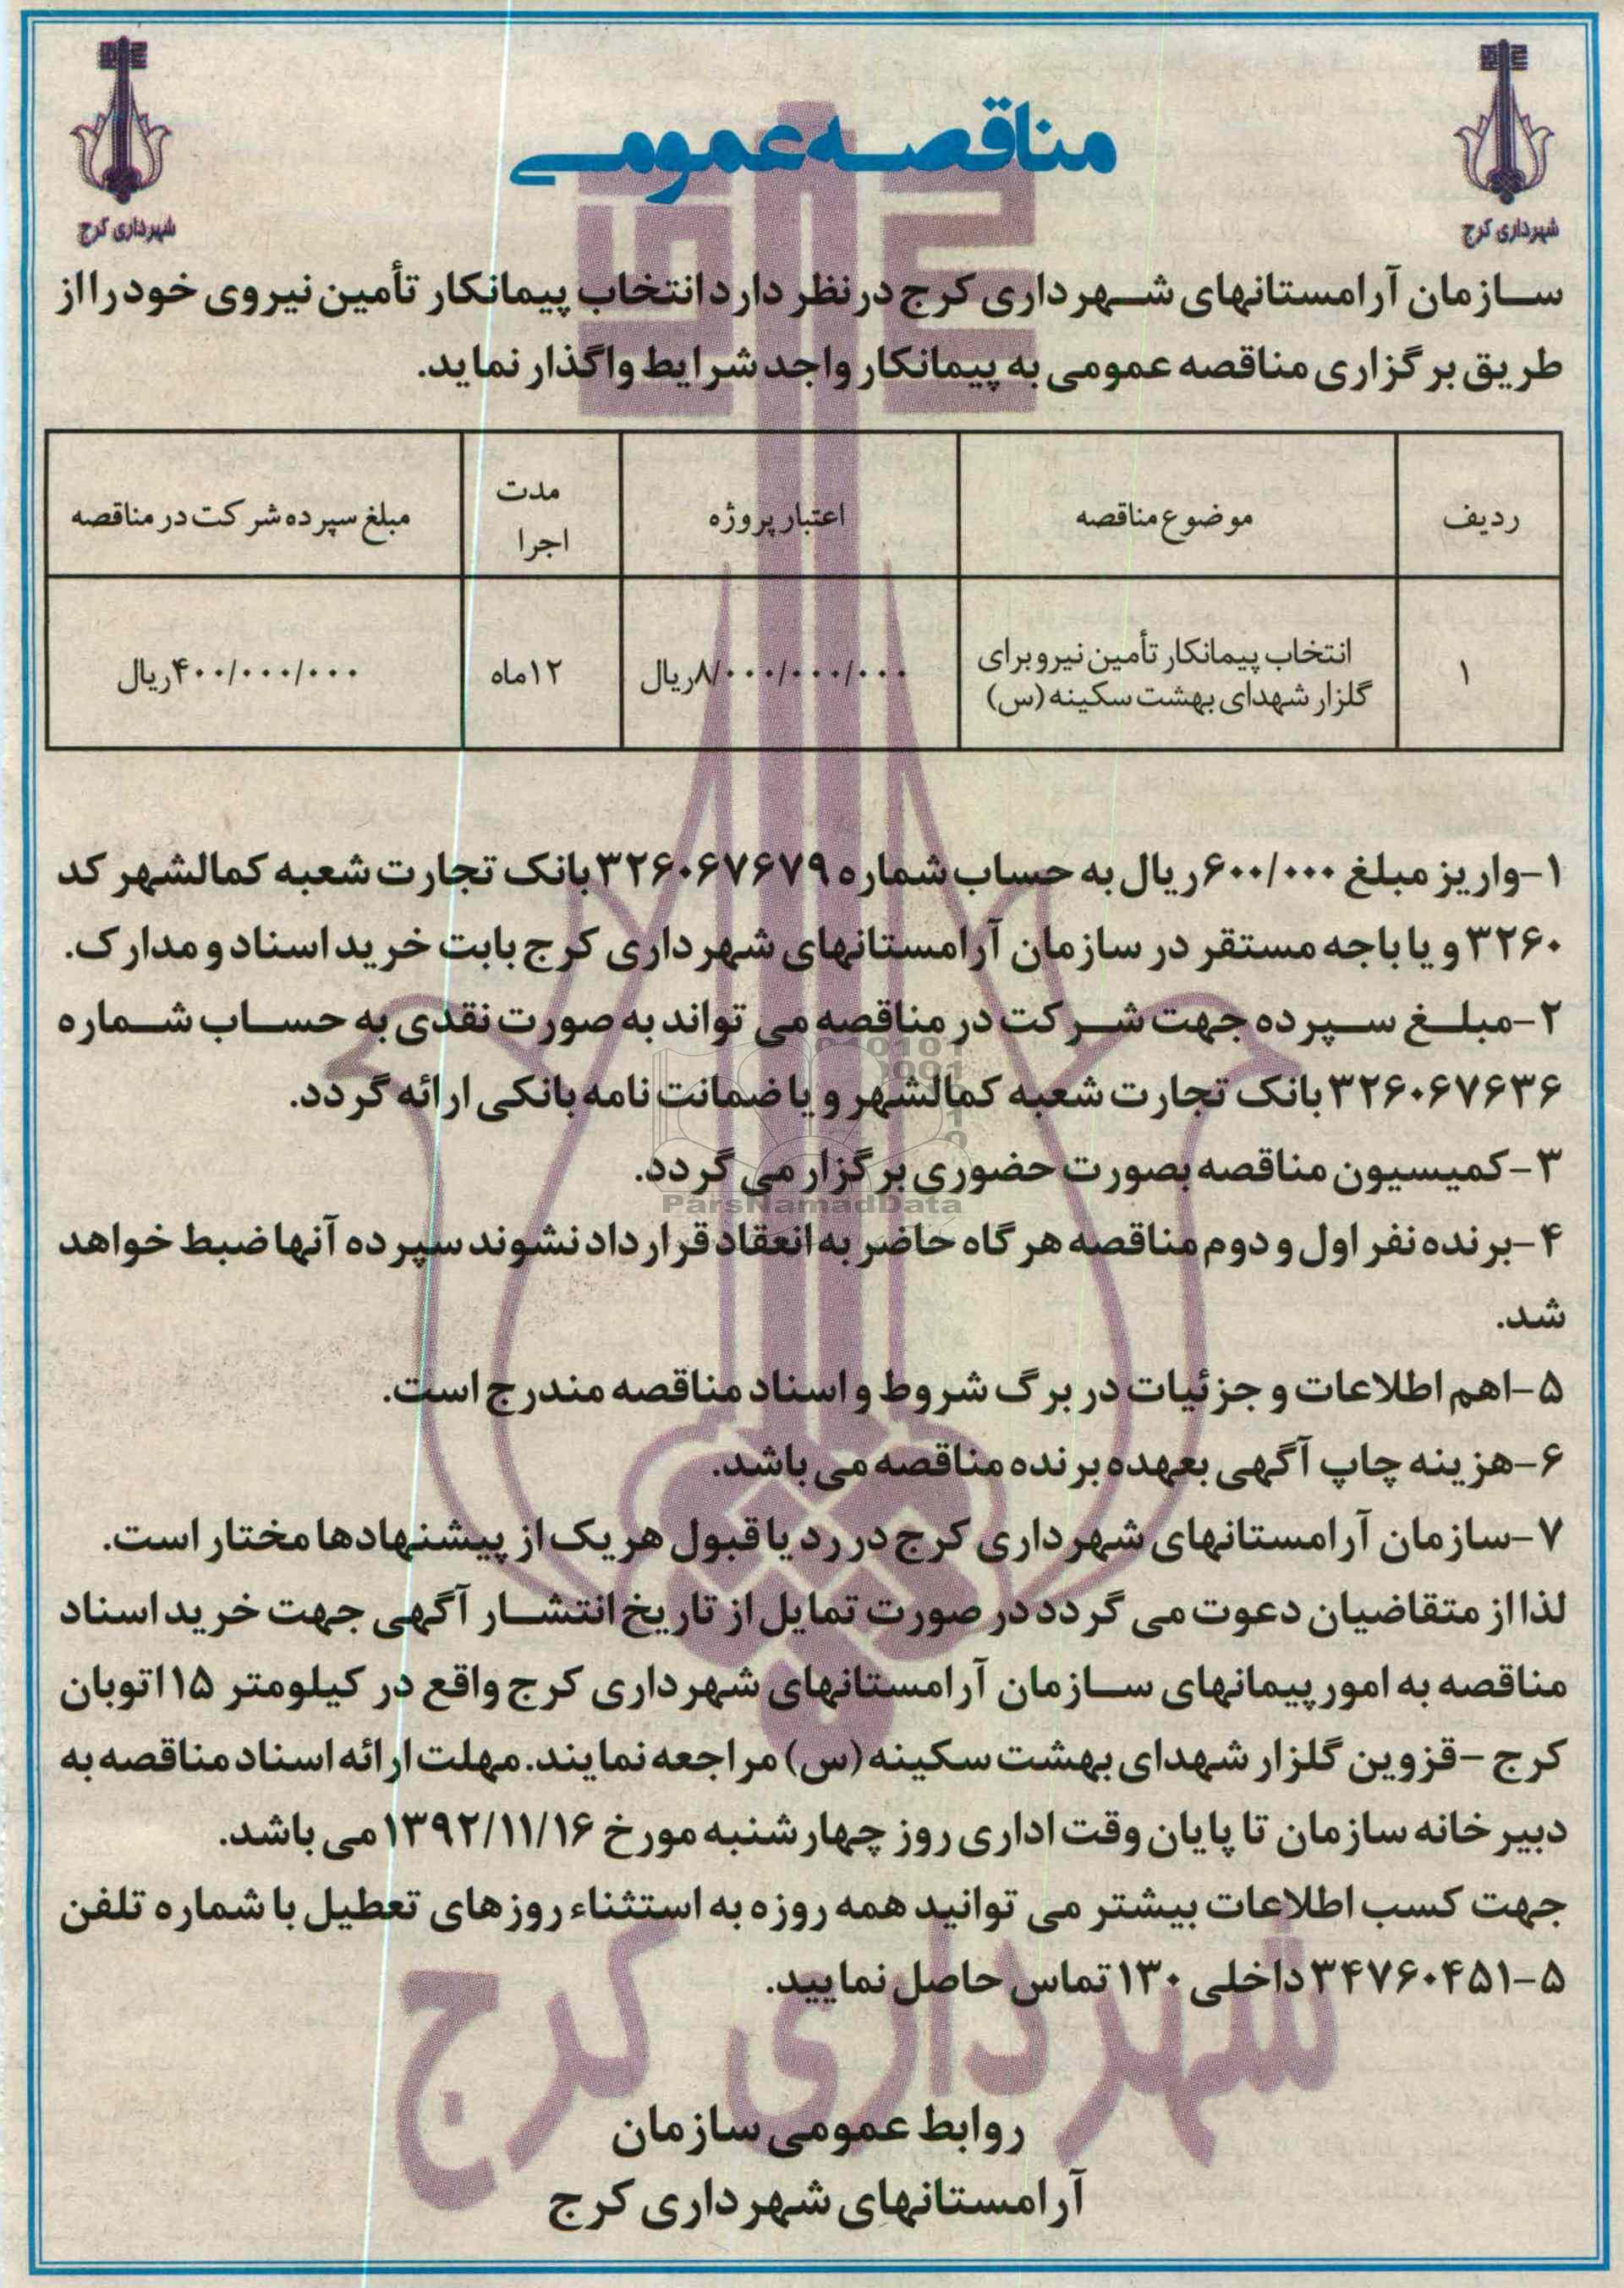 شهرداری کرج
شهرداری کرج
مناقصه عمومی
سازمان آرامستانهای شهرداری کرج درنظر دارد انتخاب پیمانکار تأمین نیروی خود را از
طریق برگزاری مناقصه عمومی به پیمانکار واجد شرایط واگذار نماید.
ردیف | موضوع مناقصه | اعتبار پروژه | مدت اجرا | مبلغ سپرده شرکت در مناقصه
۱ | انتخاب پیمانکار تأمین نیرو برای گلزار شهدای بهشت سکینه (س) | ۸/۰۰۰/۰۰۰/۰۰۰ریال | ۱۲ماه | ۴۰۰/۰۰۰/۰۰۰ریال
۱-واریز مبلغ ۶۰۰/۰۰۰ریال به حساب شماره ۳۲۶۰۶۷۶۷۹بانک تجارت شعبه کمالشهر کد
۳۲۶۰ و یا باجه مستقر در سازمان آرامستانهای شهرداری کرج بابت خرید اسناد و مدارک.
۲-مبلغ سپرده جهت شرکت در مناقصه می تواند به صورت نقدی به حساب شماره
۳۲۶۰۶۷۶۳۶بانک تجارت شعبه کمالشهر و یا ضمانت نامه بانکی ارائه گردد.
۳-کمیسیون مناقصه بصورت حضوری برگزار می گردد.
ParsNamadData
۴-برنده نفر اول و دوم مناقصه هرگاه حاضر به انعقاد قرارداد نشوند سپرده آنها ضبط خواهد
شد.
۵-اهم اطلاعات و جزئیات در برگ شروط و اسناد مناقصه مندرج است.
۶-هزینه چاپ آگهی بعهده برنده مناقصه می باشد.
۷-سازمان آرامستانهای شهرداری کرج در رد یا قبول هر یک از پیشنهادها مختار است.
لذا از متقاضیان دعوت می گردد در صورت تمایل از تاریخ انتشار آگهی جهت خرید اسناد
مناقصه به امور پیمانهای سازمان آرامستانهای شهرداری کرج واقع در کیلومتر ۱۵اتوبان
کرج -قزوین گلزار شهدای بهشت سکینه (س) مراجعه نمایند. مهلت ارائه اسناد مناقصه به
دبیرخانه سازمان تا پایان وقت اداری روز چهارشنبه مورخ ۱۳۹۲/۱۱/۱۶ می باشد.
جهت کسب اطلاعات بیشتر می توانید همه روزه به استثناء روزهای تعطیل با شماره تلفن
۳۴۷۶۰۴۵۱-۵ داخلی ۱۳۰ تماس حاصل نمایید.
شهرداری کرج
روابط عمومی سازمان
آرامستانهای شهرداری کرج